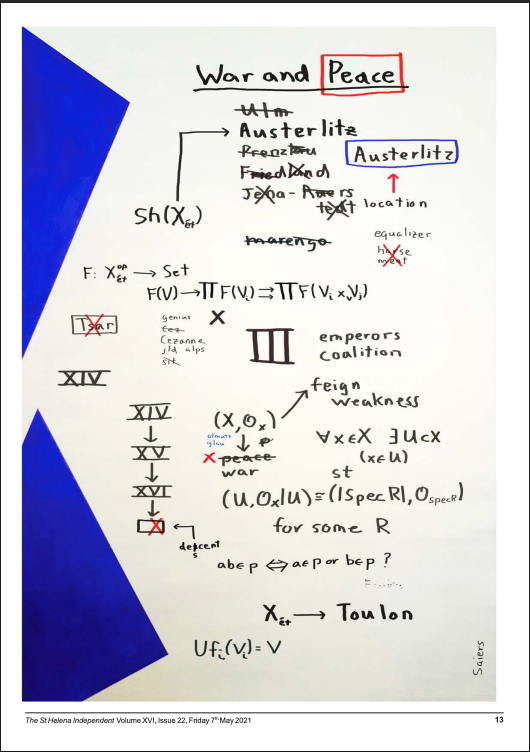 War and Peace
Ulm
Austerlitz
Prenzlau
Austerlitz
Friedland
Jena-Auers
tedt
location
Sh(X_ét)
marengo
equalizer
horse
meat
F: X_ét^op → Set
F(V) → ∏F(V_i) ⇉ ∏F(V_i ×_V V_j)
Tsar
X
genius
Cezanne
jld alps
III
emperors
coalition
XIV
feign
weakness
XIV
(X, O_x)
↓
p
X peace
war
XV
↓
XVI
↓
X
descent
s
∀x∈X ∃U⊂X
(x∈U)
st
(U, O_x|U) ≅ (|Spec R|, O_Spec R)
for some R
ab∈p ⇔ a∈p or b∈p ?
X_ét → Toulon
Uf_i(V_i) = V
Saiers
The St Helena Independent Volume XVI, Issue 22, Friday 7th May 2021
13